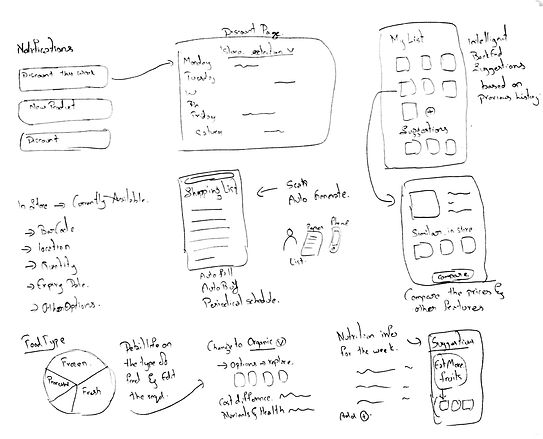 Notifications
Discount this week
New Product
Discount
Discount Page.
Store selection v
Monday
Tuesday
W
Th
Friday
Column
My List
Suggestions
Intelligent
Suggestions
based on
previous history.
In Store → Currently Available.
→ BarCode
→ location
→ Quantity
→ Expiry Date.
→ Other Options.
Shopping List
Auto Pull
Auto Buy
Periodical schedule.
← Scan
Auto Generate.
Paper
Phone
List.
Similar in store
Compare
Compare the prices &
other features
Food Type
Frozen
Fresh
Detail info on
the type of
food & Edit
the
Change to Organic
→ Options → replace.
Cost difference.
& Health
Nutrition infos
for the week.
Add
Suggestion
Eat More
fruits